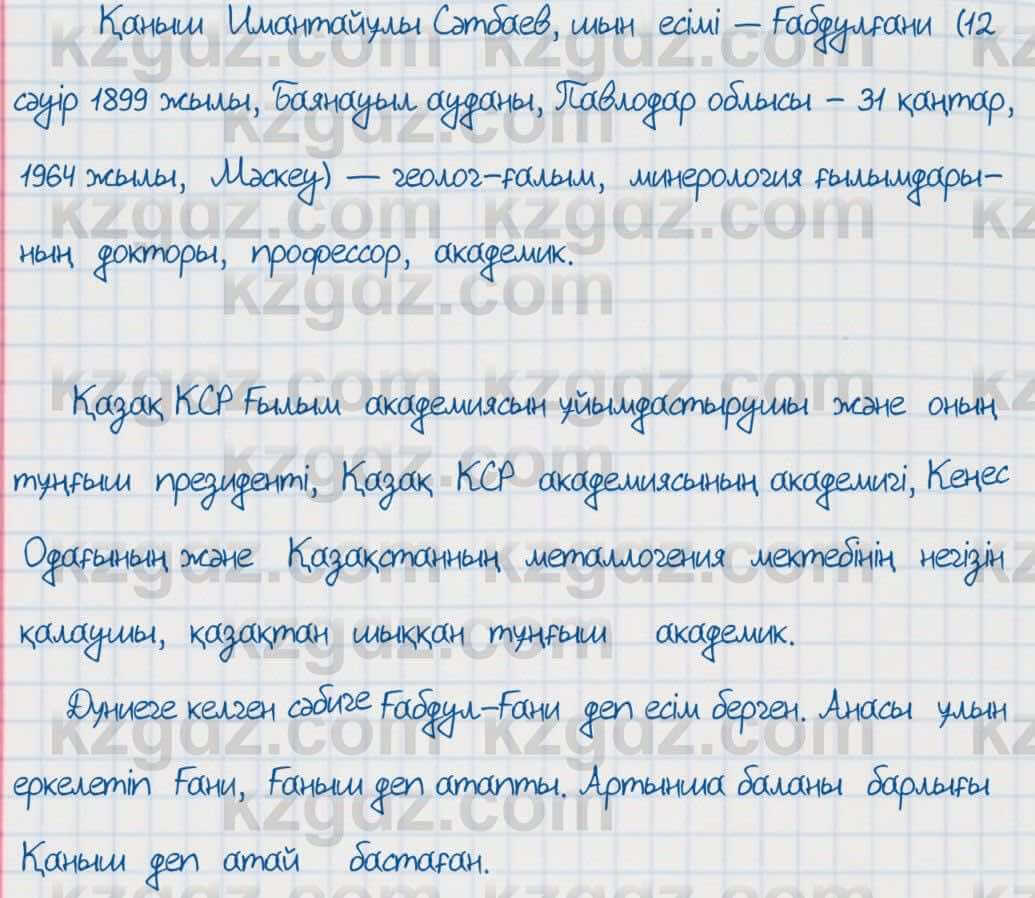 Қаныш Имантайұлы Сәтбаев, шын есімі – Ғабдулғани (12
сәуір 1899 жылы, Баянауыл ауданы, Павлодар облысы – 31 қаңтар,
1964 жылы, Мәскеу) – геолог-ғалым, минерология ғылымдары-
ның докторы, профессор, академик.
Қазақ КСР Ғылым академиясын ұйымдастырушы және оның
тұңғыш президенті, Қазақ КСР академиясының академигі, Кеңес
Одағының және Қазақстанның металлогения мектебінің негізін
қалаушы, қазақтан шыққан тұңғыш академик.
Дүниеге келген сәбиге Ғабдул-Ғани деп есім берген. Анасы ұлын
еркелетіп Ғани, Ғаныш деп атапты. Артынша баланы барлығы
Қаныш деп атай бастаған.
kzgdz.com